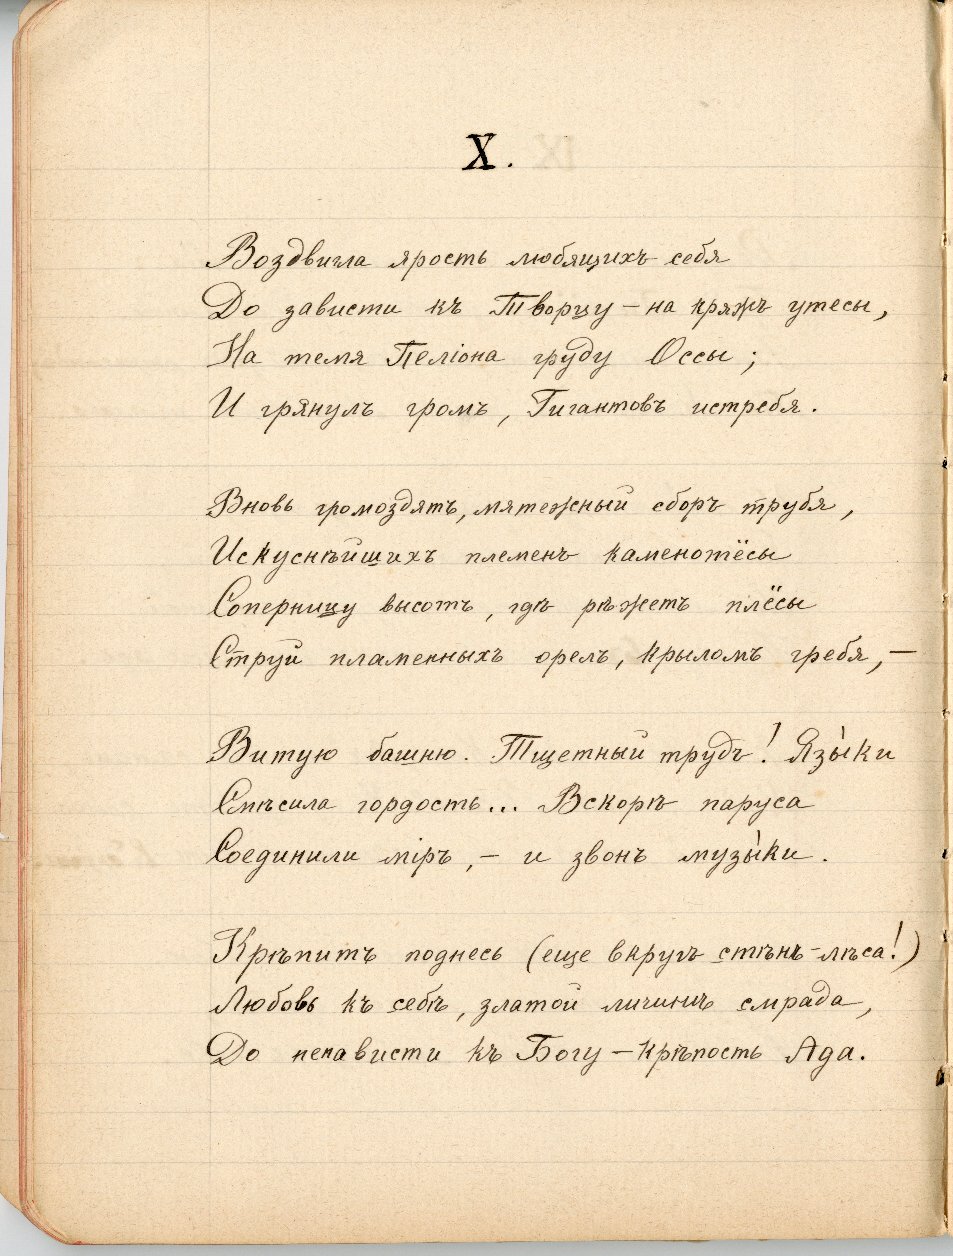 X.
Воздвигла ярость любящихъ себя
До зависти къ Творцу – на кряжъ утесы,
На темя Пеліона груду Оссы;
И грянулъ громъ, Гигантовъ истребя.
Вновь громоздятъ, мятежный сборъ трубя,
Искуснѣйшихъ племенъ каменотёсы
Соперницу высотъ, гдѣ рѣжетъ плёсы
Струй пламенныхъ орелъ, крыломъ гребя, –
Витую башню. Тщетный трудъ! Язы́ки
Смѣсила гордость... Вскорѣ паруса
Соединили міръ, – и звонъ музы́ки.
Крѣпитъ поднесь (еще вкругъ стѣнъ – лѣса!)
Любовь къ себѣ, златой личинъ смрада,
До ненависти къ Богу – крѣпость Ада.